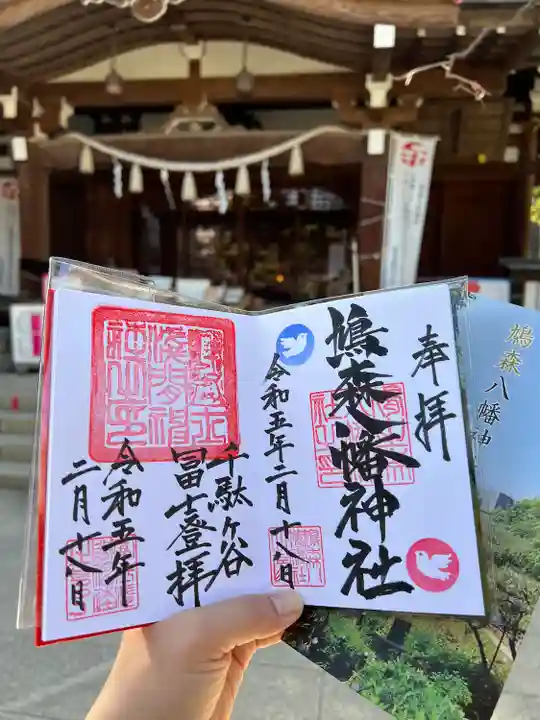 奉拝
鳩森八幡神社
令和五年二月十八日
千駄ヶ谷
冨士登拝
令和五年
二月十八日
鳩森八幡神